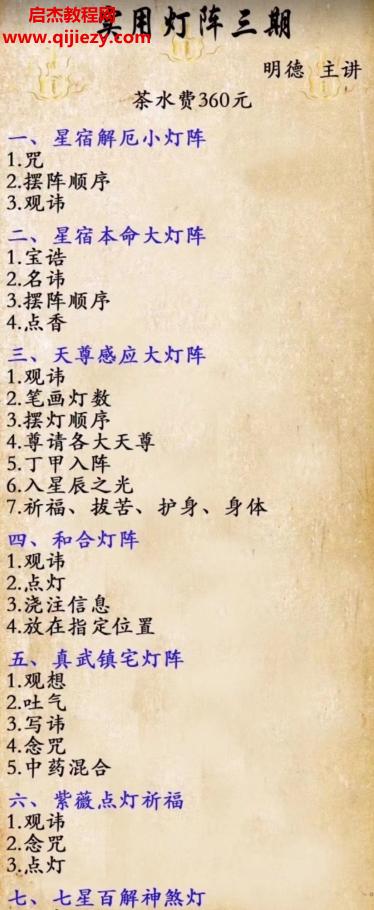 启杰教程网
www.qijiezy.com
实用灯阵三期
明德 主讲
茶水费360元
一、星宿解厄小灯阵
1.咒
2.摆阵顺序
3.观讳
二、星宿本命大灯阵
1.宝诰
2.名讳
3.摆阵顺序
4.点香
三、天尊感应大灯阵
1.观讳
2.笔画灯数
3.摆灯顺序
4.尊请各大天尊
5.丁甲入阵
6.入星辰之光
7.祈福、拔苦、护身、身体
四、和合灯阵
1.观讳
2.点灯
3.浇注信息
4.放在指定位置
五、真武镇宅灯阵
1.观想
2.吐气
3.写讳
4.念咒
5.中药混合
六、紫薇点灯祈福
1.观讳
2.念咒
3.点灯
七、七星百解神煞灯